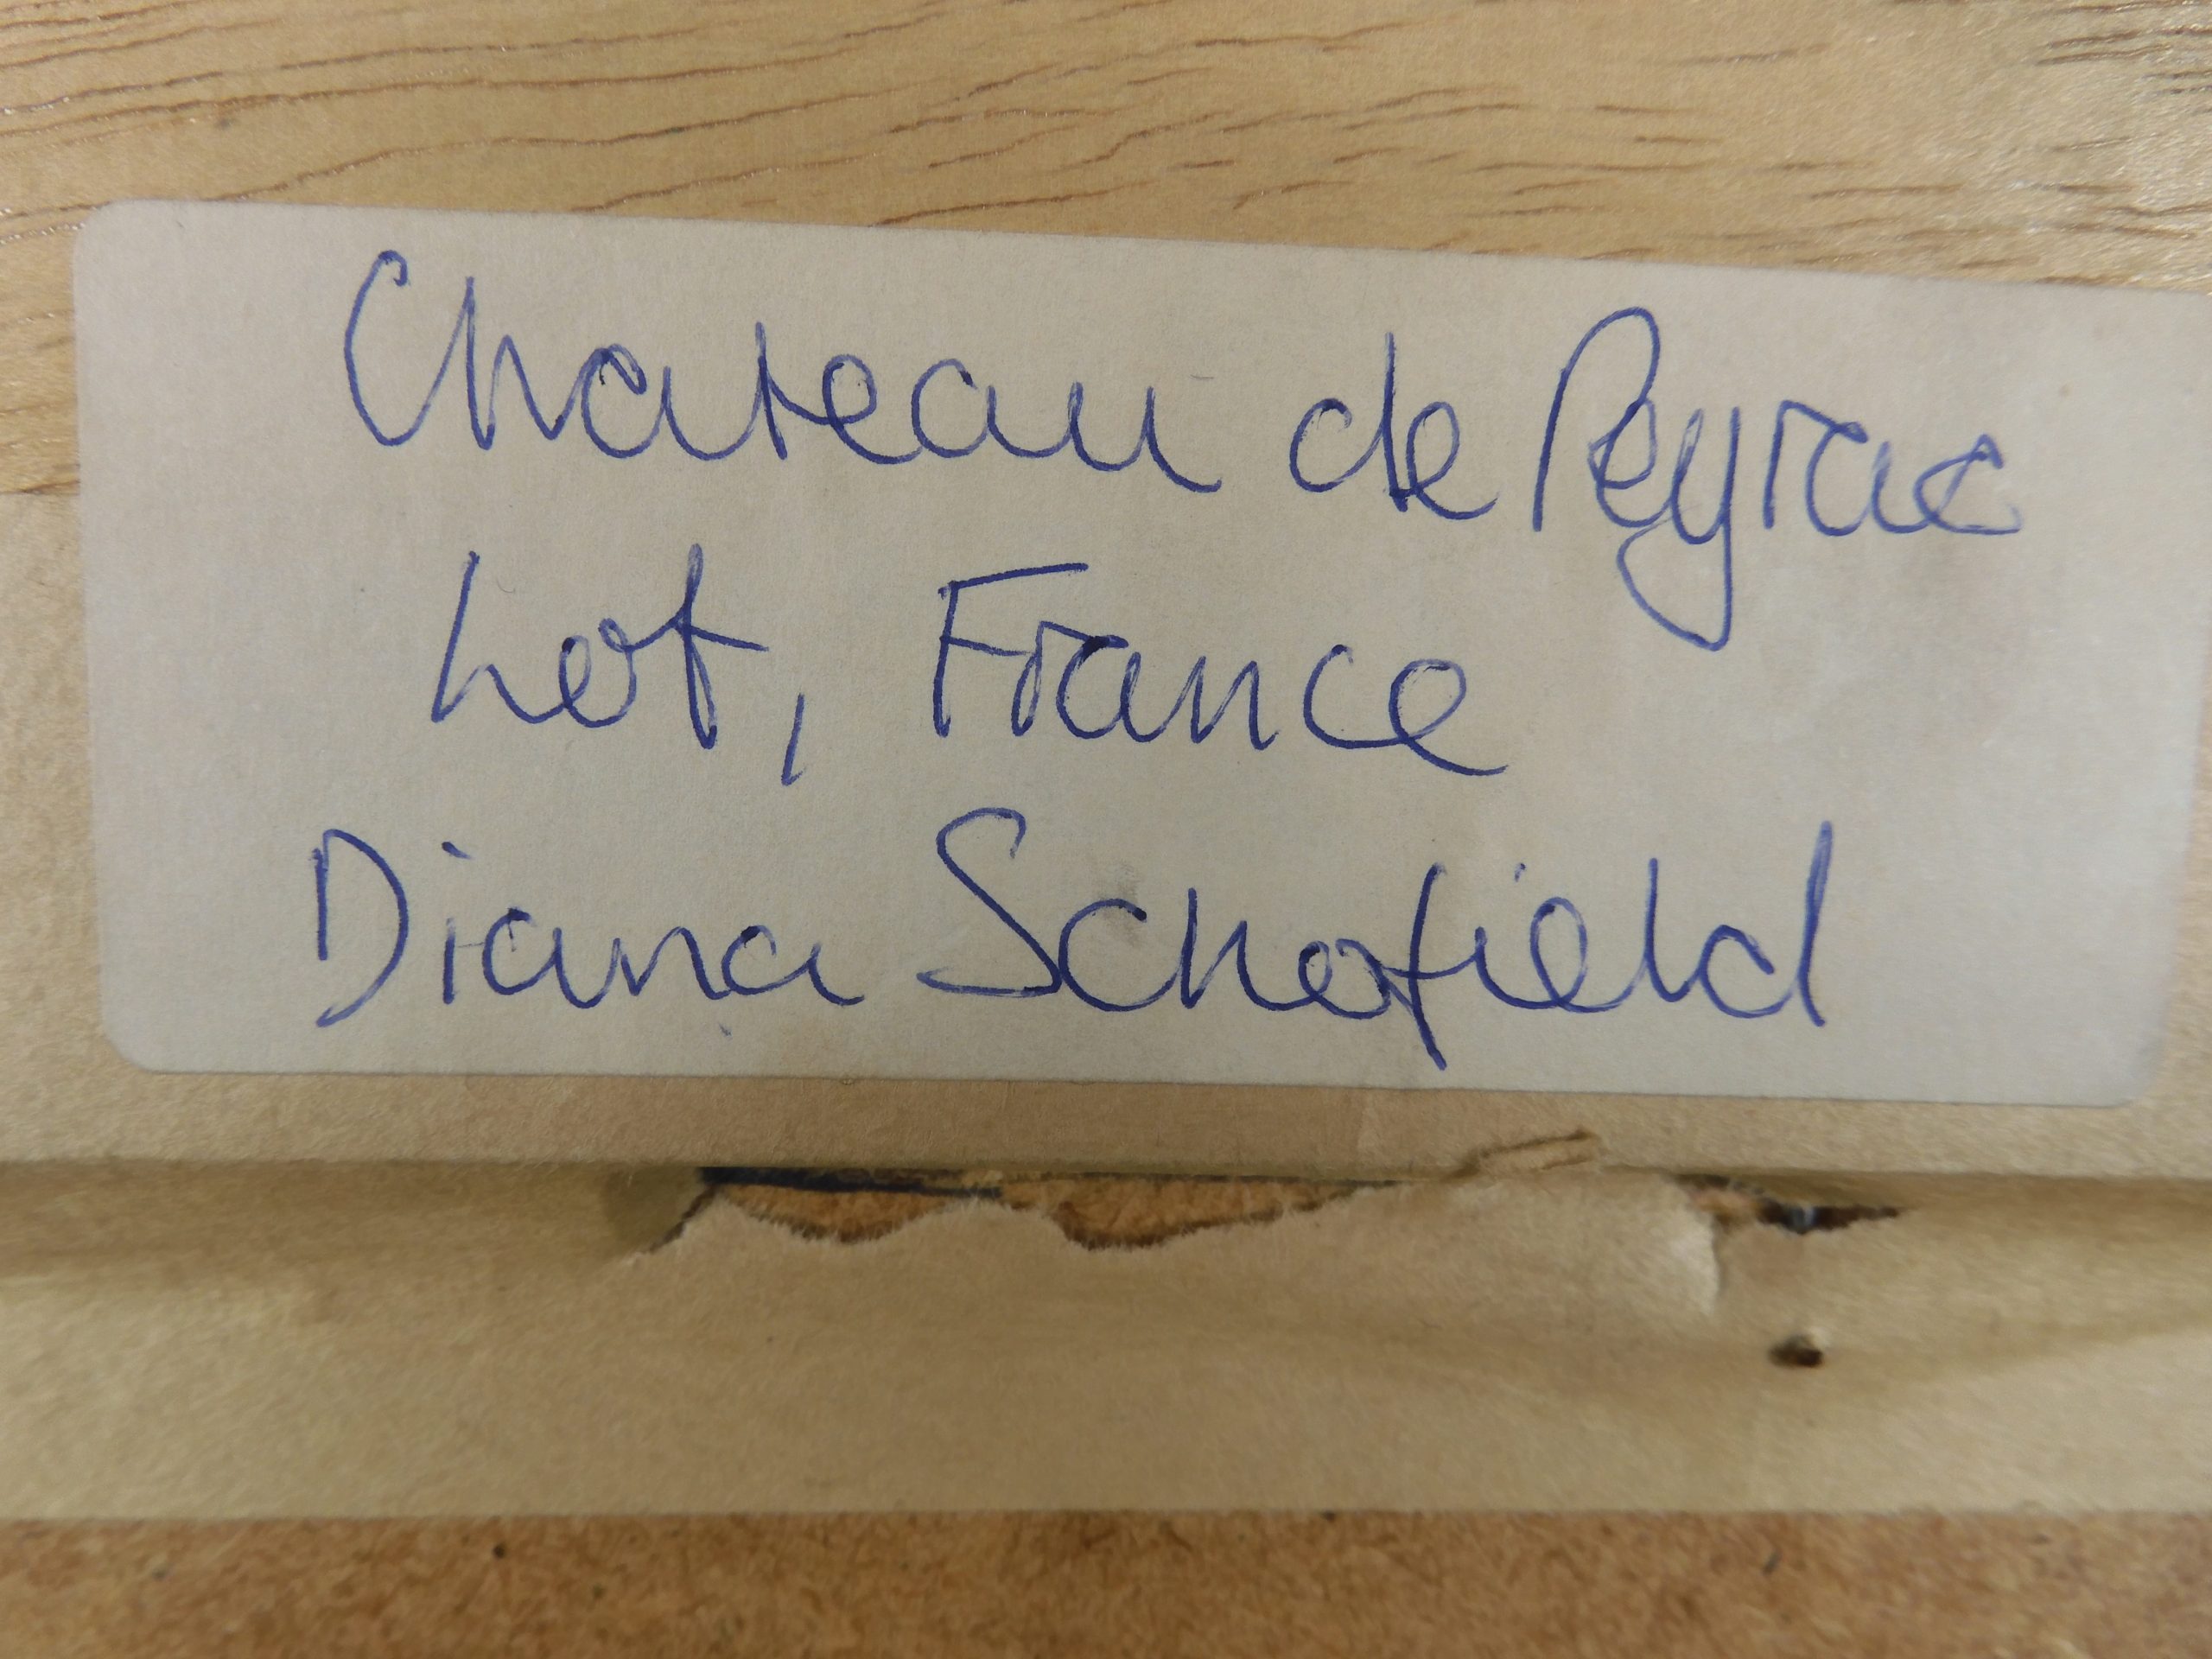 Chateau de Peyrac
Lot, France
Diana Schofield